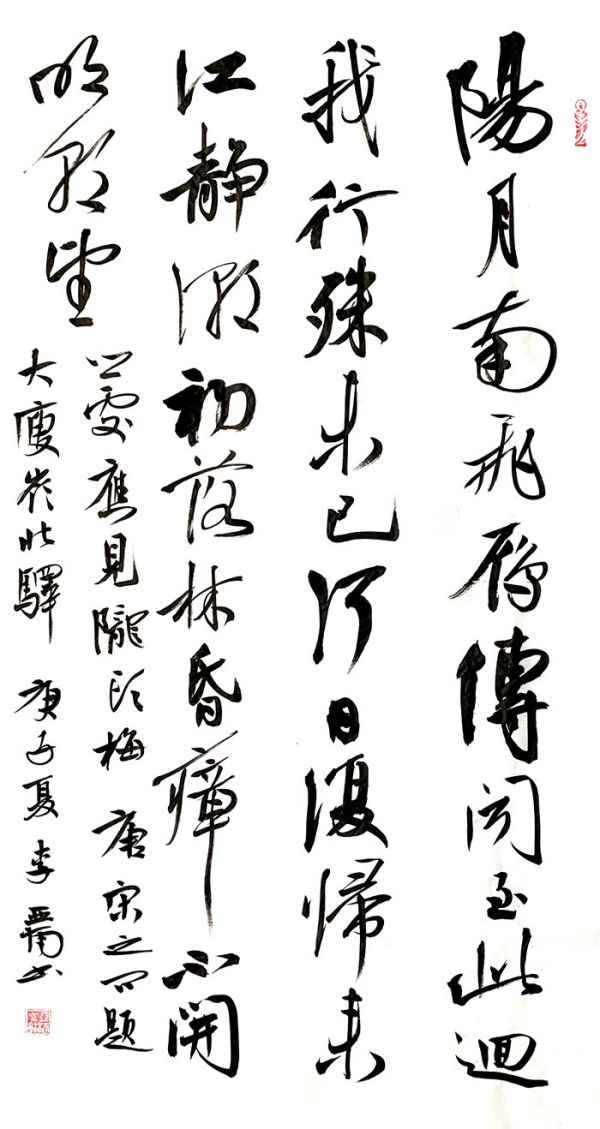 陽月南飛雁傳闻至此迴
我行殊未已何日復歸來
江静潮初落林昏瘴不開
明朝望
乡處應見隴头梅 唐宋之问題
大庾岭北驛 庚子夏 李